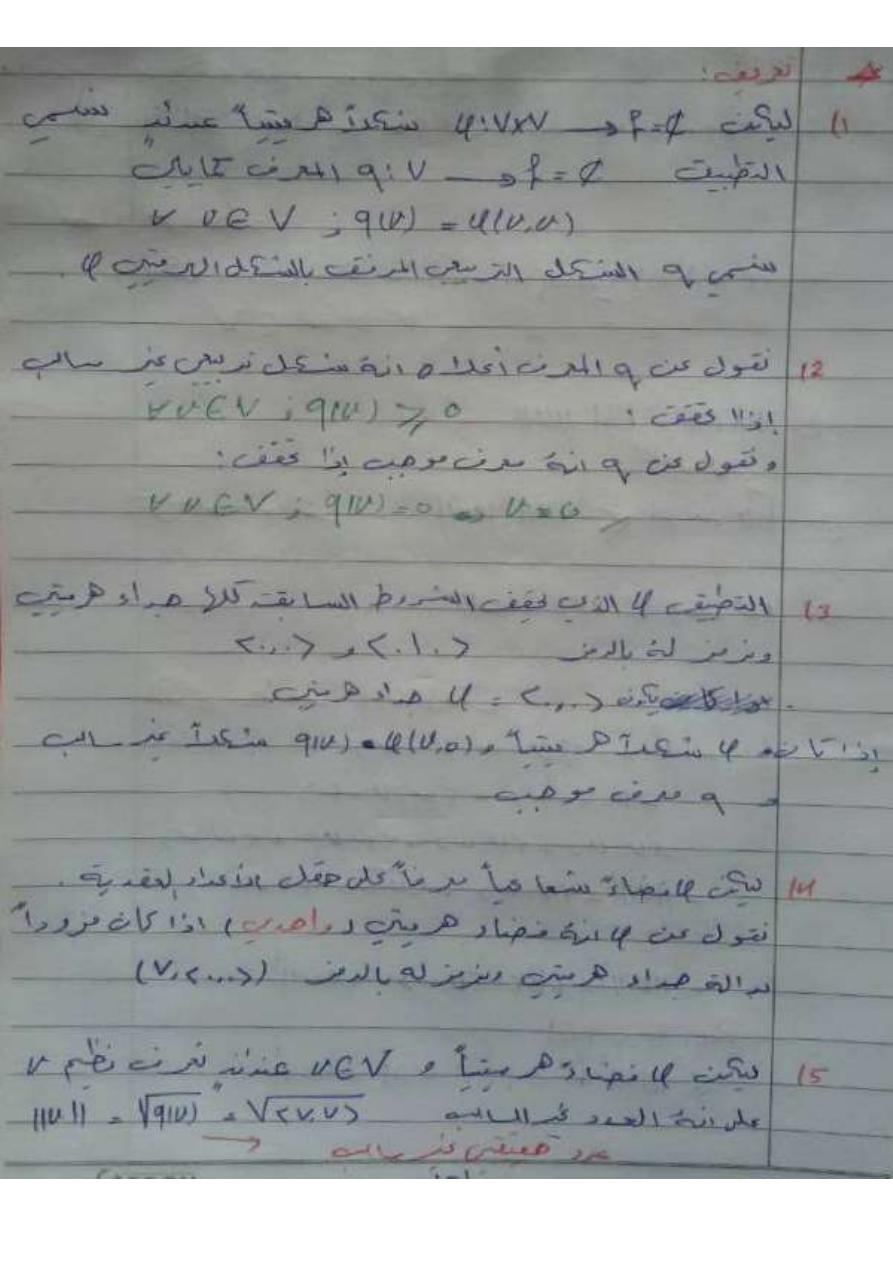 تعريف:
1) ليكن φ: V×V → f=ℂ شكلاً هرميتياً عندئذٍ نسمي
التطبيق q: V → f=ℂ المعرف كمايلي
∀ v ∈ V ; q(v) = φ(v,v)
نسمي q الشكل التربيعي المرفق بالشكل الهرميتي φ.
2) نقول عن q المعرف أعلاه انه شكل تربيعي غير سالب
إذا حقق: ∀ v ∈ V ; q(v) ≥ 0
ونقول عن q انه معرف موجب إذا حقق:
∀ v ∈ V ; q(v) = 0 ⇔ v = 0
3) التطبيق φ الذي يحقق الشروط السابقة كلها جداء هرميتي
ونرمز له بالرمز <.|.> و <.,.>
يكون <.,.> = φ جداء هرميتي
إذا كان φ شكلاً هرميتياً و q(v) = φ(v,v) شكلاً غير سالب
و q معرف موجب
4) ليكن V فضاءً شعاعياً معرفاً على حقل الأعداد العقدية.
نقول عن V انه فضاء هرميتي (واحدي) اذا كان مزوداً
بدالة جداء هرميتي ونرمز له بالرمز (V,<.,.>)
5) ليكن V فضاءً هرميتياً و v∈V عندئذٍ نعرف نظيم v
على انه العدد غير السالب ||v|| = √q(v) = √<v,v>
عدد حقيقي غير سالب